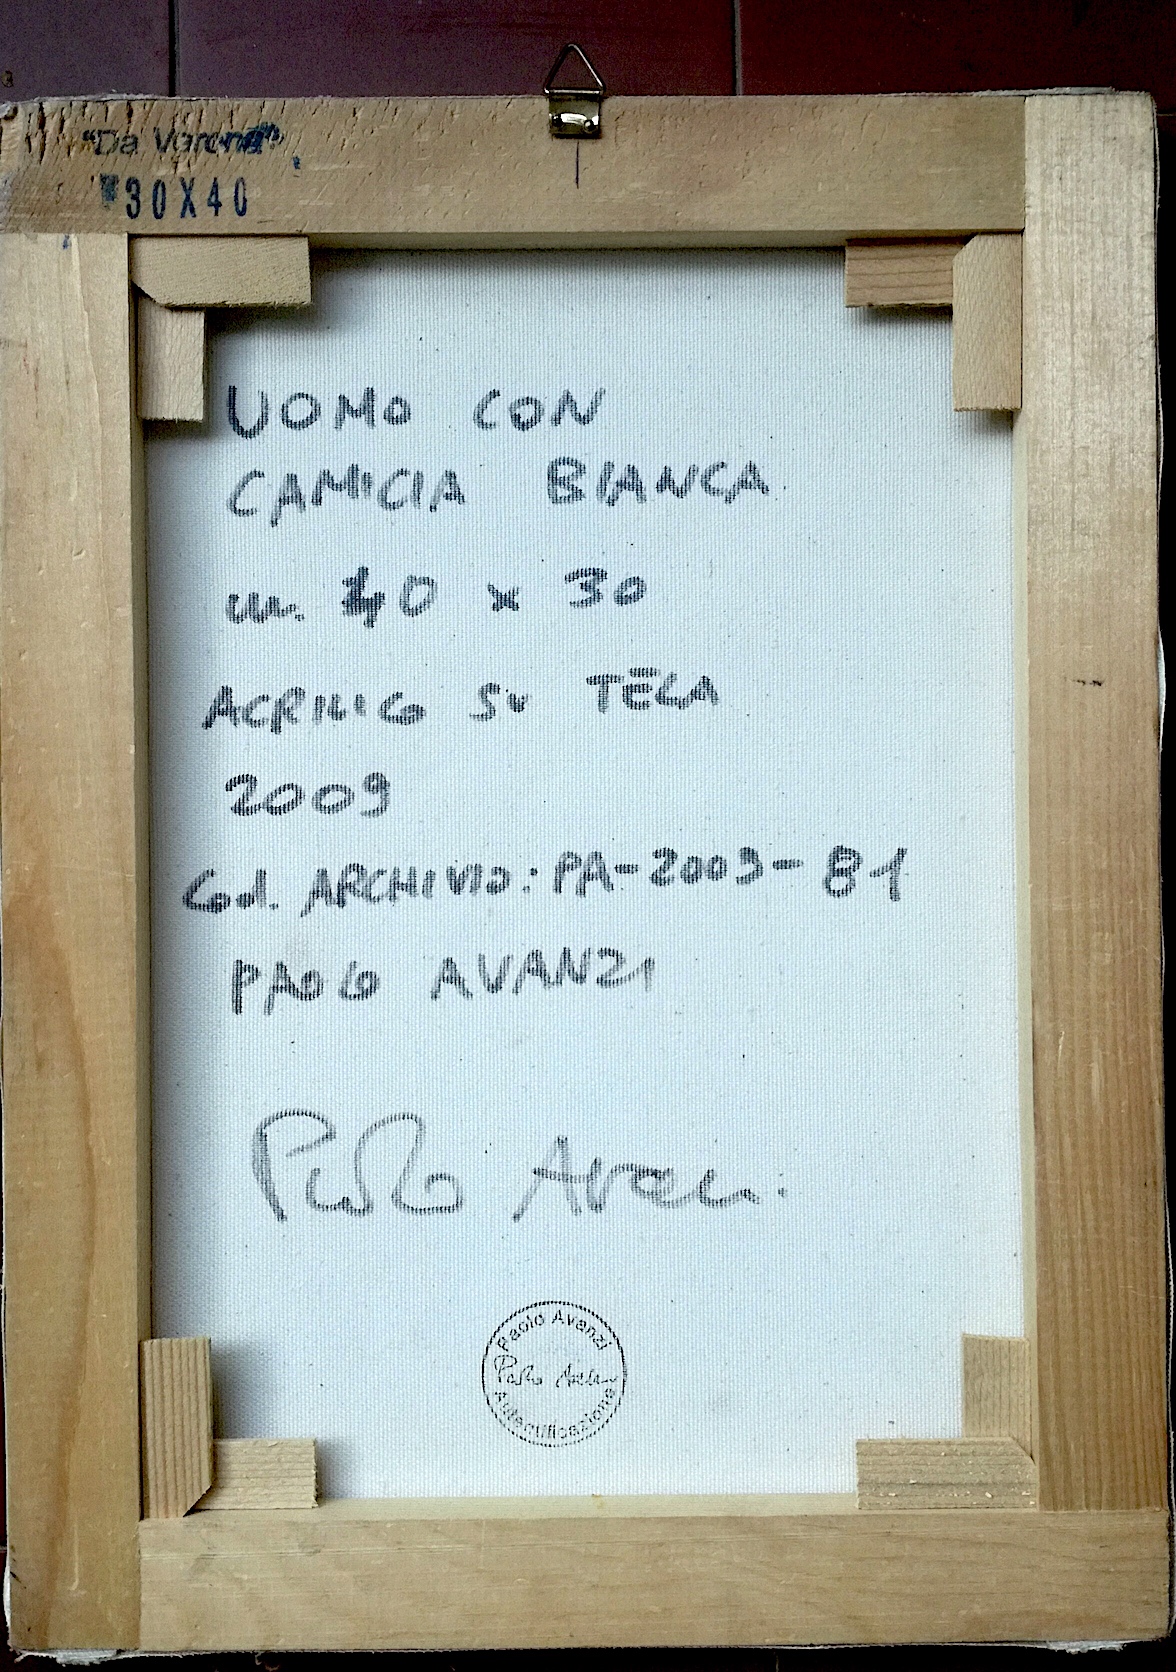 "Da Vorona"
30X40
UOMO CON
CAMICIA BIANCA
cm. 40 x 30
ACRILICO SU TELA
2009
Cod. ARCHIVIO: PA-2009-81
PAOLO AVANZI
Paolo Avanzi
Paolo Avanzi
Paolo Avanzi
Autentificazione